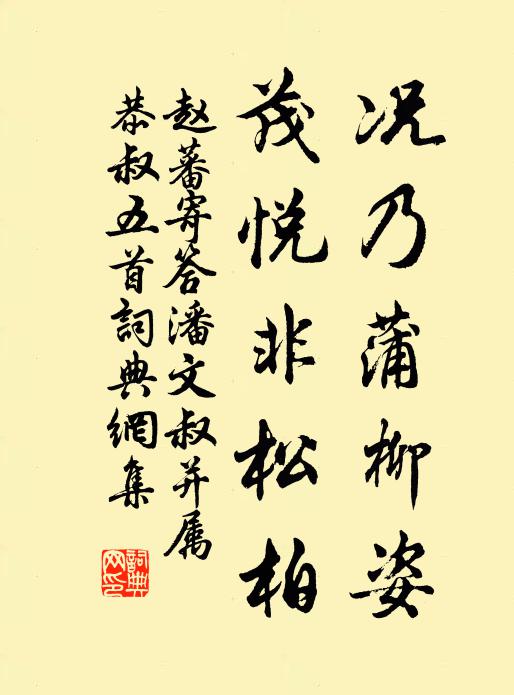 况乃蒲柳姿
茂悦非松柏
赵蕃寄答潘文叔并属
恭叔五首词典網集
詞典网印